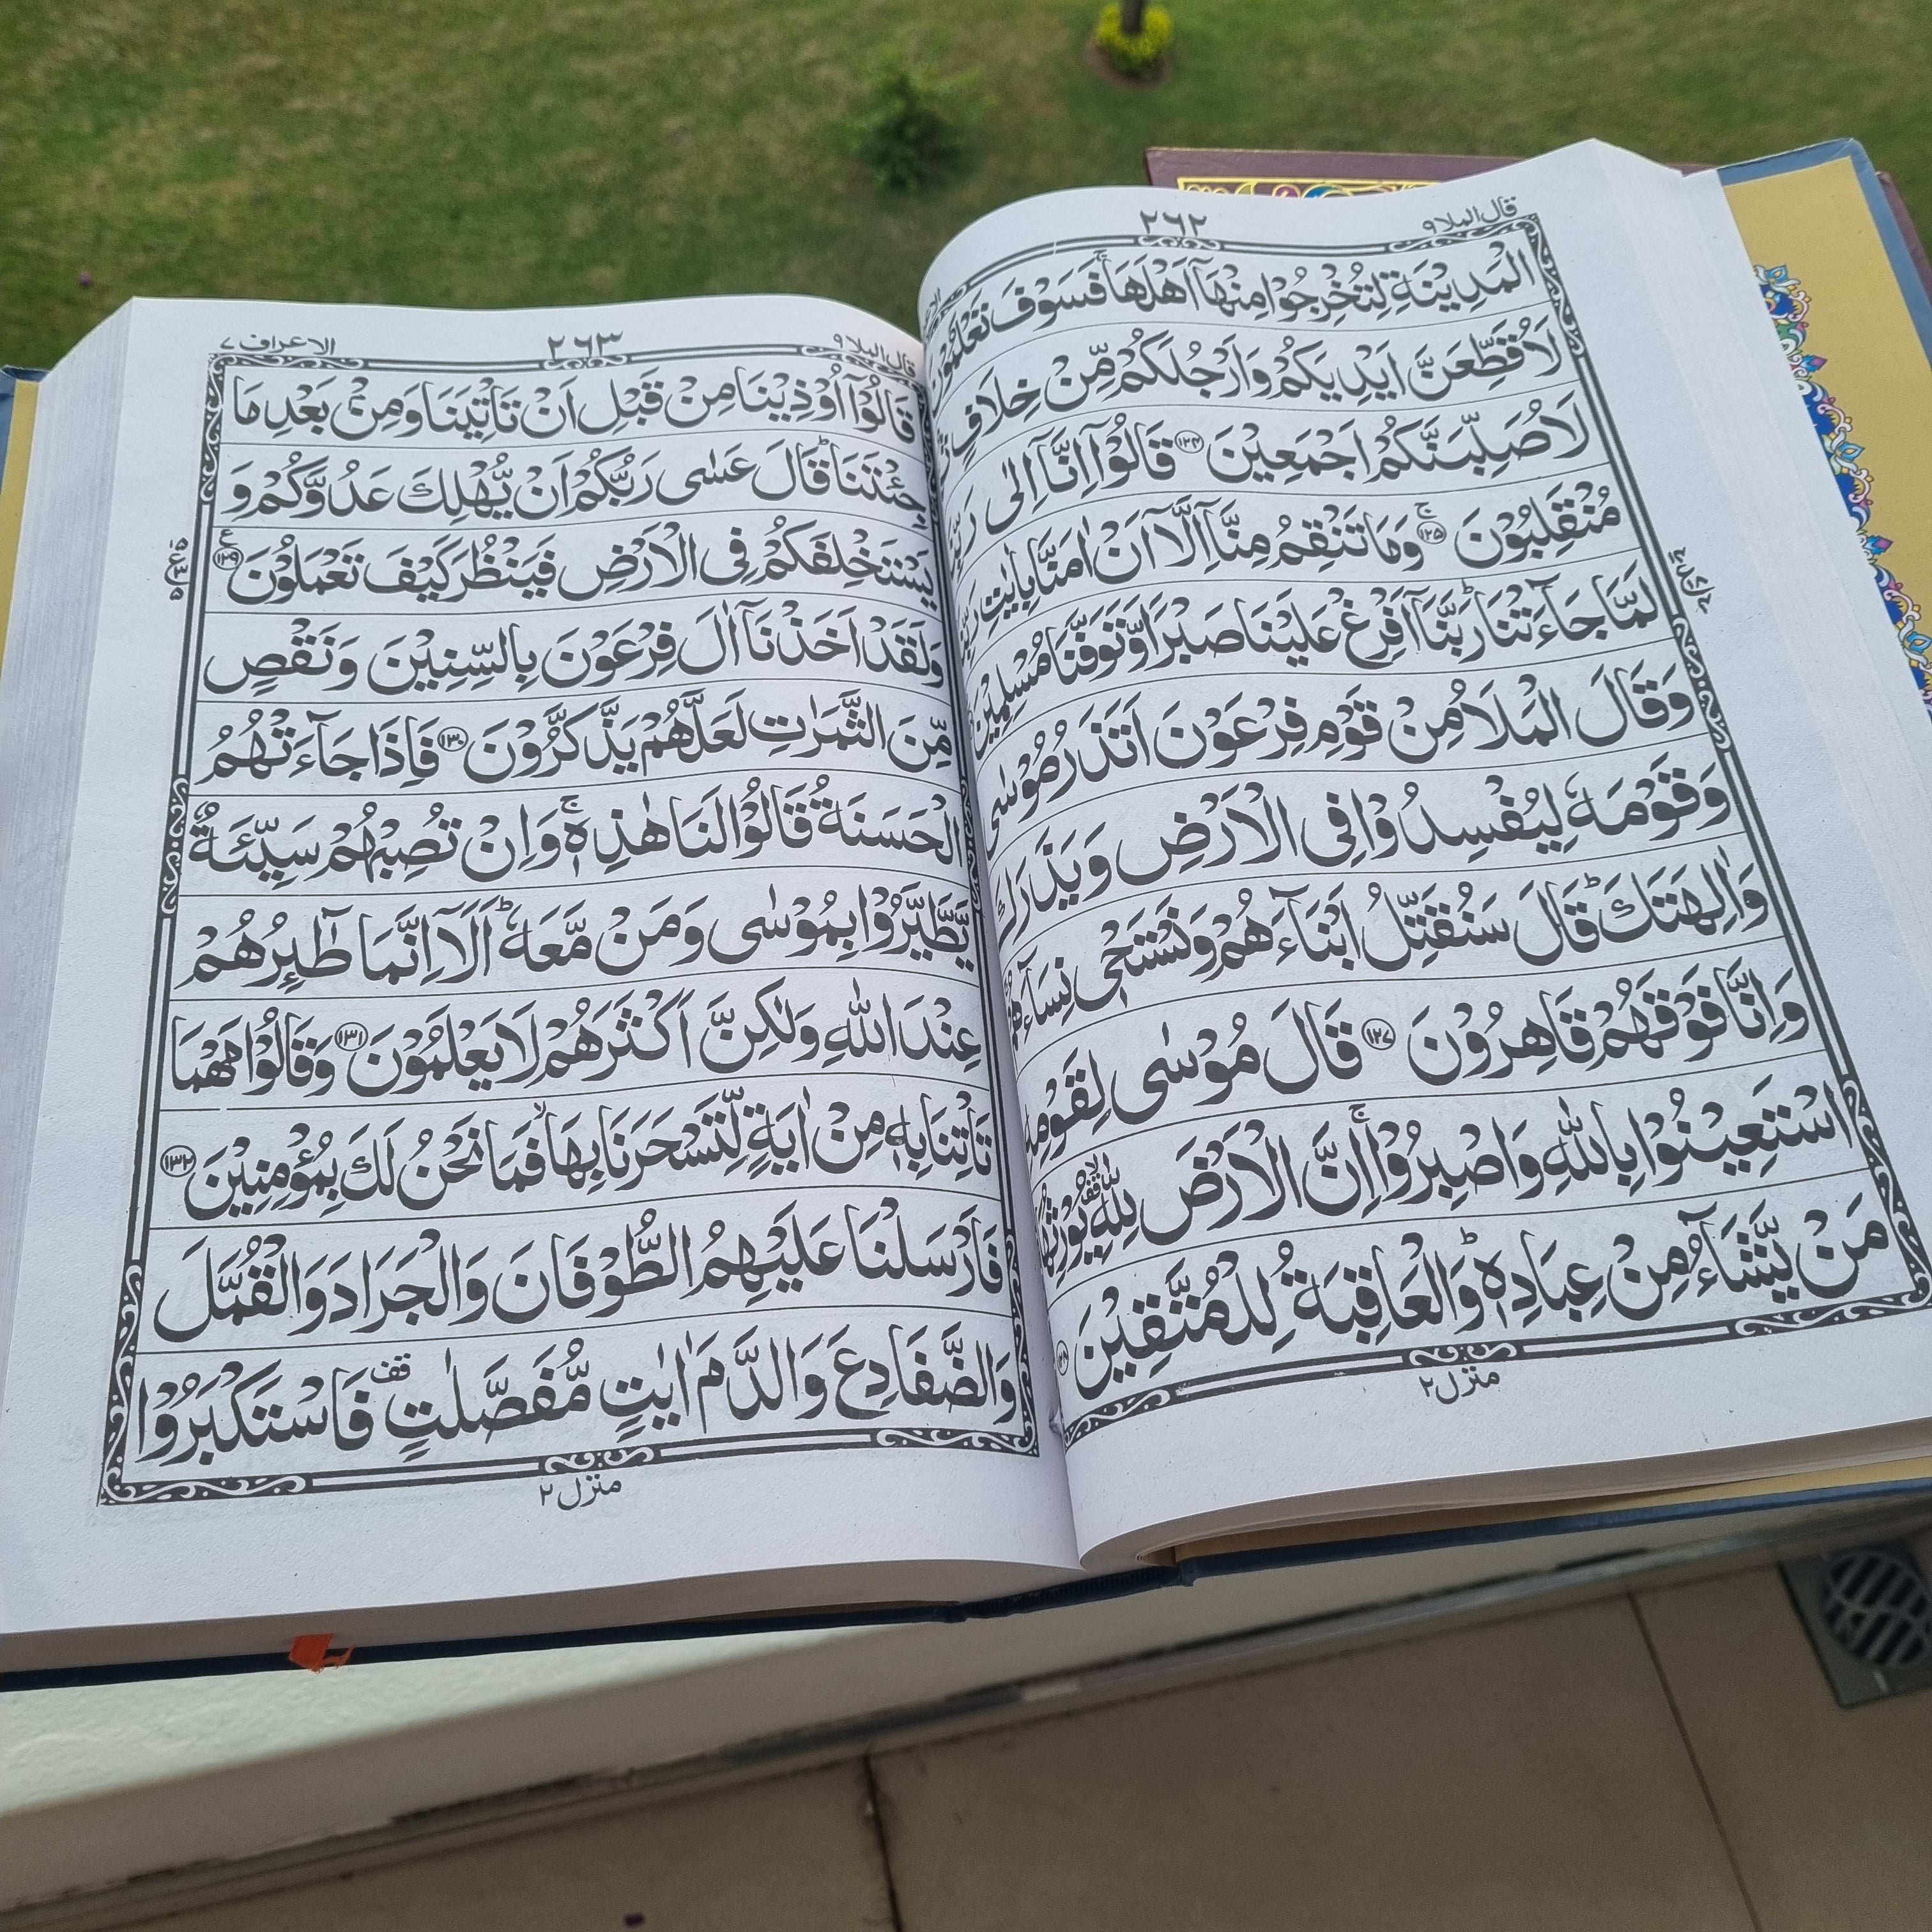 قال الملا ٩
٢٦٢
الْمَدِيْنَةِ لِتُخْرِجُوْا مِنْهَآ اَهْلَهَا ۚ فَسَوْفَ تَعْلَمُوْنَ
لَاُقَطِّعَنَّ اَيْدِيَكُمْ وَاَرْجُلَكُمْ مِّنْ خِلَافٍ
لَاُصَلِّبَنَّكُمْ اَجْمَعِيْنَ ١٢٤ قَالُوْٓا اِنَّآ اِلٰى
مُنْقَلِبُوْنَ ۚ ١٢٥ وَمَا تَنْقِمُ مِنَّآ اِلَّآ اَنْ اٰمَنَّا بِاٰيٰتِ
لَمَّا جَآءَتْنَا ؕ رَبَّنَآ اَفْرِغْ عَلَيْنَا صَبْرًا وَّتَوَفَّنَا مُسْلِمِيْنَ
وَقَالَ الْمَلَاُ مِنْ قَوْمِ فِرْعَوْنَ اَتَذَرُ مُوْسٰى
وَقَوْمَهٗ لِيُفْسِدُوْا فِى الْاَرْضِ وَيَذَرَكَ
وَاٰلِهَتَكَ ؕ قَالَ سَنُقَتِّلُ اَبْنَآءَهُمْ وَنَسْتَحْىٖ نِسَآءَهُمْ
وَاِنَّا فَوْقَهُمْ قَاهِرُوْنَ ١٢٧ قَالَ مُوْسٰى لِقَوْمِهِ
اسْتَعِيْنُوْا بِاللّٰهِ وَاصْبِرُوْا ۚ اِنَّ الْاَرْضَ لِلّٰهِ ۙقف يُوْرِثُهَا
مَنْ يَّشَآءُ مِنْ عِبَادِهٖ ؕ وَالْعَاقِبَةُ لِلْمُتَّقِيْنَ
منزل ٢
قال الملا ٩
٢٦٣
الاعراف ٧
قَالُوْٓا اُوْذِيْنَا مِنْ قَبْلِ اَنْ تَاْتِيَنَا وَمِنْۢ بَعْدِ مَا
جِئْتَنَا ؕ قَالَ عَسٰى رَبُّكُمْ اَنْ يُّهْلِكَ عَدُوَّكُمْ وَ
يَسْتَخْلِفَكُمْ فِى الْاَرْضِ فَيَنْظُرَ كَيْفَ تَعْمَلُوْنَ ١٢٩
وَلَقَدْ اَخَذْنَآ اٰلَ فِرْعَوْنَ بِالسِّنِيْنَ وَنَقْصٍ
مِّنَ الثَّمَرٰتِ لَعَلَّهُمْ يَذَّكَّرُوْنَ ١٣٠ فَاِذَا جَآءَتْهُمُ
الْحَسَنَةُ قَالُوْا لَنَا هٰذِهٖ ۚ وَاِنْ تُصِبْهُمْ سَيِّئَةٌ
يَّطَّيَّرُوْا بِمُوْسٰى وَمَنْ مَّعَهٗ ؕ اَلَآ اِنَّمَا طٰٓئِرُهُمْ
عِنْدَ اللّٰهِ وَلٰكِنَّ اَكْثَرَهُمْ لَا يَعْلَمُوْنَ ١٣١ وَقَالُوْا مَهْمَا
تَاْتِنَا بِهٖ مِنْ اٰيَةٍ لِّتَسْحَرَنَا بِهَا ۙ فَمَا نَحْنُ لَكَ بِمُؤْمِنِيْنَ ١٣٢
فَاَرْسَلْنَا عَلَيْهِمُ الطُّوْفَانَ وَالْجَرَادَ وَالْقُمَّلَ
وَالضَّفَادِعَ وَالدَّمَ اٰيٰتٍ مُّفَصَّلٰتٍ قف فَاسْتَكْبَرُوْا
منزل ٢